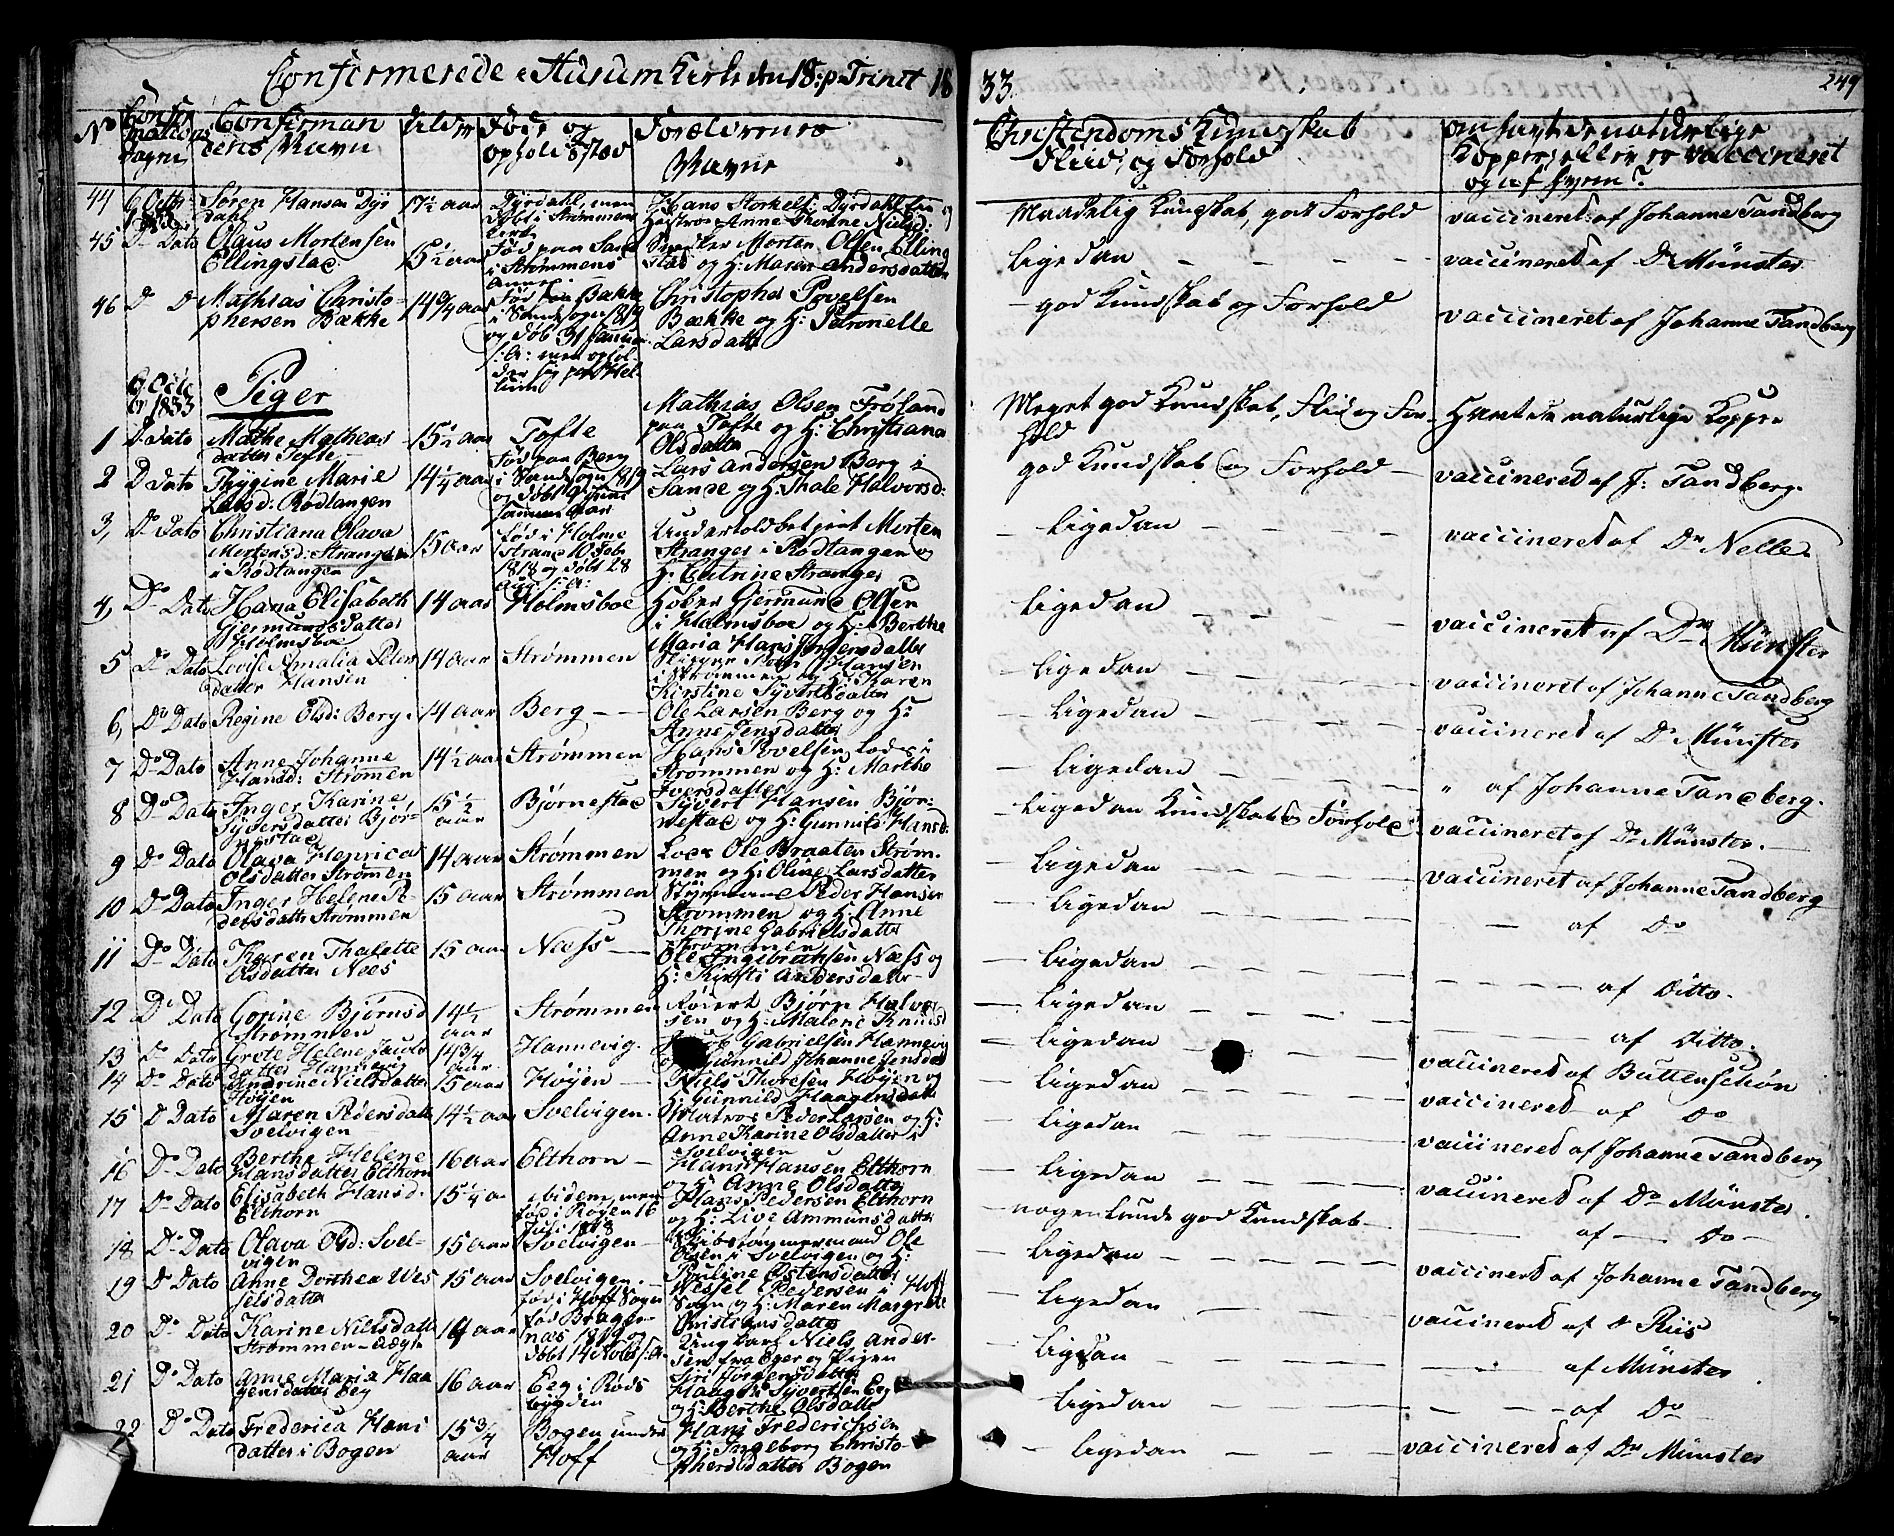 Confirmerede i Hurum Kirke den 18: p. Trinit 1833.
249
No
Confirmations Dagen
Confirmandens Navn
Alder
Føde og opholdssted
Forældrenes Navne
Christendoms Kundskab Flid, og Forhold
om havt de naturlige Kopper, eller er vaccineret og af hvem?
44 6 Octb: 1833 Søren Hansen Dyrdahl 17½ aar Dyrdahl, men døbt i Strømmen Hans Torkels: Dyrdahl og Hustrue Anne Nielsd: Maadelig Kundskab, godt Forhold vaccineret af Johanne Tandberg
45 Do Dato Olaus Mortensen Ellingstad 15½ aar Fød paa Sand i Strømmens Morten Olsen Ellingstad og H: Maren Andersdatter ligedan vaccineret af Dr Münster
46 D D Mathias Christophersen Bække 14¾ aar Fød paa Bække i Sandsogn 1819 og døbt 31 Januar s: A: men opholder sig paa Christopher Povelsen Bække og H: Petronelle Larsdatter god Kundskab og Forhold vaccineret af Johanne Tandberg
6 Octbr 1833
Piger
1 D Dato Mathe Mathiasdatter Tofte 15½ aar Tofte Mathias Olsen Frøland paa Tofte og H: Christiana Olsdatter Meget god Kundskab, Flid og Forhold Havt de naturlige Kopper
2 D Dato Thygine Marie Larsd: Rødtangen 14¼ aar Fød paa Berg i Sandsogn 1819 og døbt samme Aar Lars Andersen Berg i Sande og H: Thale Halvorsd: god Kundskab og Forhold vaccineret af J: Tandberg.
3, Do Dato Christiana Olava Mortensd: Stranger i Rødtangen 15 aar fød i Holmestrand 10 Feb 1818 og døbt 28 Aug s: A: Undertoldbetjent Morten Stranger i Rødtangen og H: Catrine Stranger ligedan vaccineret af Dr Nelle
4, Do Dato Hana Elisabeth Germundsdatter Holmsboe 14 aar Holmsboe Germund Olsen i Holmsboe og H: Berthe Maria Hans Jørgensdatter ligedan vaccineret af Dr Münster
5 Do Dato Lovise Amalia Petersdatter Hansen 14 aar Strømmen Peter Hansen i Strømmen og H: Karen Kirstine Syvertsdatter ligedan vaccineret af Johanne Tandberg
6, Do Dato Regine Olsd: Berg 14 aar Berg Ole Larsen Berg og H: Anne Jensdatter ligedan vaccineret af Dr Münster
7 Do Dato Anne Johanne Hansd: Strømen 14½ aar Strømmen Hans Povelsen, Lods i Strømmen og H: Marthe Iversdatter ligedan " af Johanne Tandberg.
8 Do Dato Inger Karine Syversdatter Bjørnestad 15½ aar Bjørnestad Syvert Hansen Bjørnestad og H: Gunnild Hansd: ligedan Kundskab og Forhold vaccineret af Dr Münster.
9 Do Dato Olava Henrica Olsdatter Strømen 14 aar Strømmen Lods Ole Braaten Strømmen og H: Oline Larsdatter ligedan vaccineret af Johanne Tandberg
10 Do Dato Inger Helene Pedersdatter Strømmen 15 aar Strømmen Styrmand Peder Hansen Strømmen og H: Anne Thorine Gabrielsdatter Strømmen ligedan af Do
11 Do Dato Karen Thalette Olsdatter Nees 15 aar Næss Ole Ingebrethsen Næss og H: Kirsti Andersdatter ligedan af Ditto.
12 Do Dato Gorine Bjørnsd Strømmen 14½ aar Strømmen Bjørn Halvorsen og H: Malene Knudsd ligedan af Ditto.
13 Do Dato Grete Helene Jacobsdatter Hannevig 14¾ aar Hannevig. Jacob Gabrielsen Hannevig og Gunnild Johanne Jensdat ligedan vaccineret af Buttenschøn
14 Do Dato Andrine Nielsdatter Høyen 15 aar Høyen Niels Thoresen Høyen og H: Gunnild Haagensdatter ligedan vaccineret af Do
15 D Dato Maren Pedersdatter Svelvigen 14½ aar Svelvigen. Matros Peder Larsen og H: Anne Karine Olsdatter i Svelvigen ligedan vaccineret af Johanne Tandberg
16 Do Dato Berthe Helene Hansdatter Elthorn 16 aar Elthorn Hans Hansen Elthorn og H: Anne Olsdatter ligedan vaccineret af Dr Münster.
17 Do Dato Elisabeth Hansd. Elthorn 15¼ a ibidem, men fød i Røgen 16 Juli 1818 Hans Pedersen Elthorn og H: Live Ammunsdatter nogenlunde god Kundskab af Do
18 Do Dato Olava Olsd: Svelvigen 15 aar Svelvigen Skibstømmermand Ole Olsen i Svelvigen og H: Pouline Ostensdatter ligedan vaccineret af Johanne Tandberg
19 Do Dato Anne Dorthea Wesselsdatter 15 aar Svelvigen. fød i Hoff Sogn Wessel Pedersen i Hoff Sogn og H: Maren Margrete Christiansdatter ligedan vaccineret af Riis
20 Do Dato Karine Nielsdatt Strømmen 14 aar fød Bragernæs 1819 og døbt 14 Novbr s: A: Ungkarl Niels Andersen fra Eger og Pigen Siri Jørgensdatter ligedan af Münster
21 Do Dato Anne Maria Haagensdatter Eeg 16 aar Eeg i Rødsbygden Haagen Syvertsen Eeg og H: Berthe Olsdatter ligedan af Do
22 Do Dato Frederica Hansdatter i Bogen 15¾ aar Bogen under Hoff Hans Frederichsen og H: Ingeborg Christophersdatter Bogen ligedan vaccineret af Dr Münster